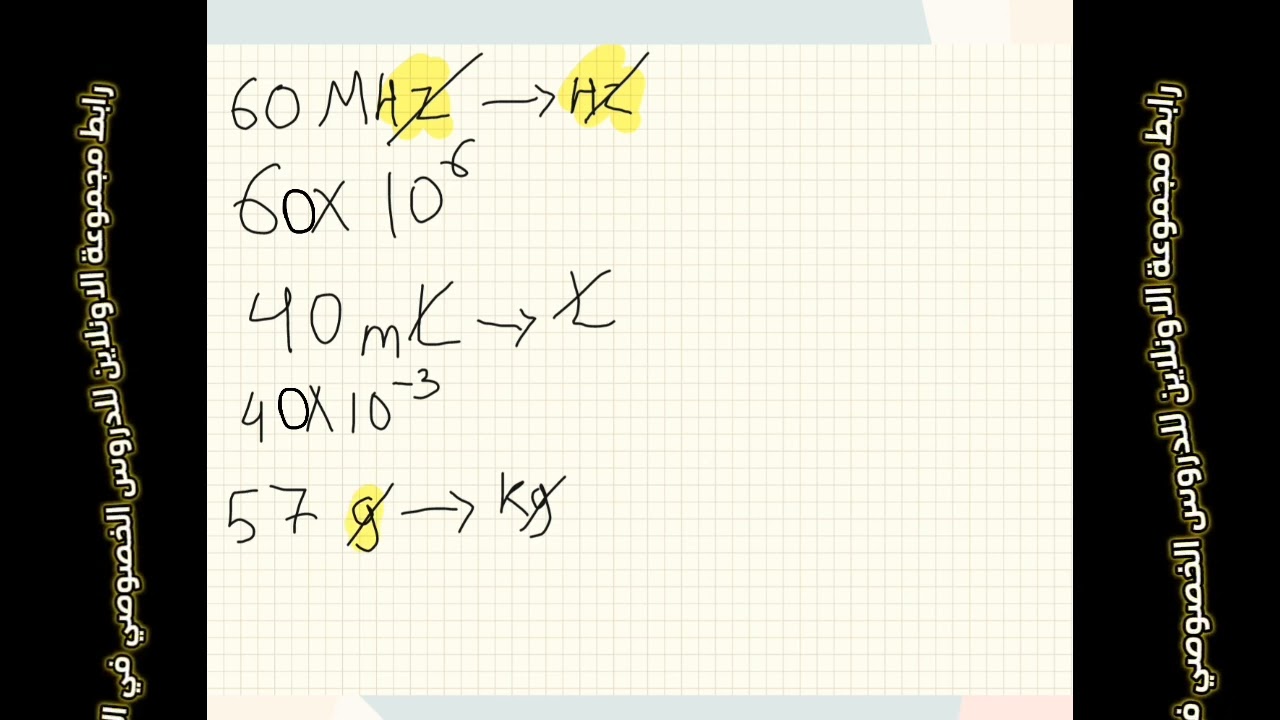 رابط مجموعة الاونلاين للدروس الخصوصي في
60 MHZ → HZ
60x 10⁶
40 mL → L
40x10⁻³
57 g → kg
رابط مجموعة الاونلاين للدروس الخصوصي